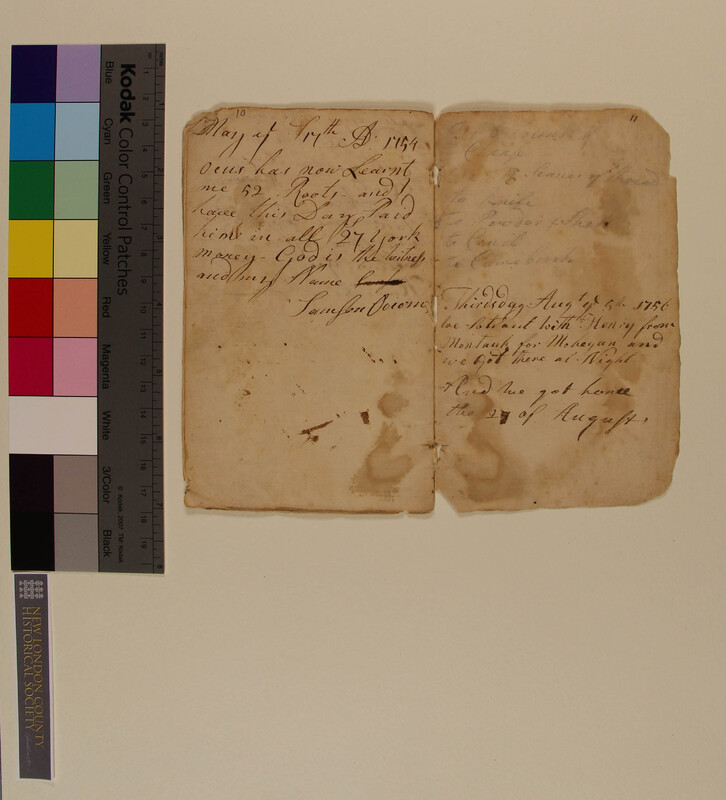 Kodak Color Control Patches
Blue
Cyan
Green
Yellow
Red
Magenta
White
3/Color
Black
© KODAK, 2007 TM: KODAK
NEW LONDON COUNTY
HISTORICAL SOCIETY
10
May ye 17th AD 1754
Ocus has now Learnt
me 52 Roots and I
have this Day Paid
him in all 27 York
money - God is the witness
and my Name
Samson Occom
11
to knife
to Powder & Shot
Thirdsday Augt ye 5th 1756
we Set out with Henry from
Montauk for Mohegan and
we Got there at Night
And we got home
the 27 of August.